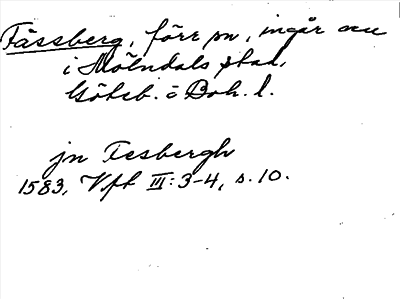 Fässberg, förr sn, ingår nu
i Mölndals stad,
Göteb. o Boh. l.
jn Fesbergh
1583, Vft III: 3-4, s. 10.